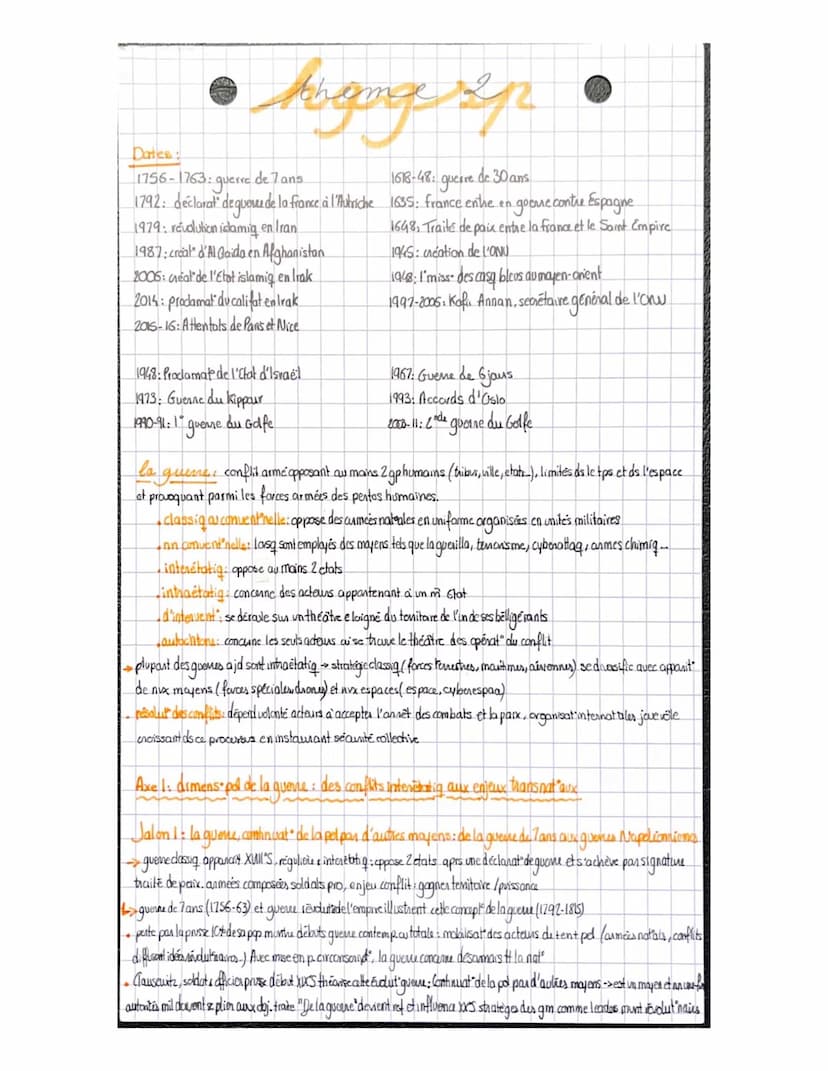 hggsp
thème 2
Dates :
1756-1763: guerre de 7 ans
1792: déclarat° de guerre de la france à l'Autriche
1979: révolution islamiq en Iran
1987: créat° d'Al Qaida en Afghanistan
2006: créat° de l'Etat islamiq en Irak
2014: proclamat° du califat en Irak
2015-16: Attentats de Paris et Nice
1618-48: guerre de 30 ans
1635: france entre en guerre contre Espagne
1648: Traité de paix entre la france et le Saint Empire
1945: création de l'ONU
1948: 1° miss° des casq bleus au moyen-orient
1997-2006: Kofi Annan, secrétaire général de l'ONU
1948: Proclamat° de l'Etat d'Israël
1973: Guerre du Kippour
1990-91: 1° guerre du Golfe
1967: Guerre de 6 jours
1993: Accords d'Oslo
-11: 2nde guerre du Golfe
la guerre: conflit armé opposant au moins 2 gp humains (tribus, ville, etats...), limités ds le tps et ds l'espace
et provoquant parmi les forces armées des pertes humaines.
. classiq ou convent°nelle: oppose des armées nat°ales en uniforme organisées en unités militaires
. nn convent°nelle: lorsq sont employés des moyens tels que la guerilla, terrorisme, cyberattaq, armes chimiq...
. interétatiq: oppose au moins 2 etats
. intraétatiq: concerne des acteurs appartenant à un m̂ Etat
. d'intervent°: se déroule sur un théâtre eloigné du territoire de l'un de ses belligérants
. autochtone: concerne les seuls acteurs où se trouve le théâtre des opérat° du conflit
→ plupart des guerres ajd sont intraétatiq → stratégie classiq (forces terrestres, maritimes, aériennes) se diversifie avec apparit°
de nvx moyens (forces spéciales, drones) et nvx espaces (espace, cyberespace)
. résolut° des conflits: dépend volonté acteurs à accepter l'arrêt des combats et la paix, organisat° internat°ales joue rôle
croissant ds ce processus en instaurant sécurité collective
Axe 1: dimens° pol de la guerre : des conflits interétatiq aux enjeux transnat°aux
Jalon 1: la guerre, continuat° de la pol par d'autres moyens: de la guerre de 7 ans aux guerres Napoléoniennes
→ guerre classiq apparait XVIII°S, régulière & interétatiq: oppose 2 etats aprs une déclarat° de guerre et s'achève par signature
traité de paix. armées composées soldats pro, enjeu conflit: gagner territoire / puissance
↳ guerre de 7 ans (1756-63) et guerre révolut° de l'empire illustrent cette concept° de la guerre (1792-1815)
. perte par la prusse 10% de sa pop montre débuts guerre contemp ou totale : mobilisat° des acteurs détent pol (armées nat°ales, conflits
diffusent idées révolut°naires.) Avec mise en p circonscript°, la guerre concerne désormais tt la nat°
. Clausewitz, soldat & officier prusse début XIX°S théorise cette évolut° guerre: "Continuat° de la pol par d'autres moyens → est un moyen et nn une fin
autorités mil doivent se plier aux obj. traité "De la guerre" devient ref et influence XX°S stratèges des gm comme leaders mvmt révolut°naires